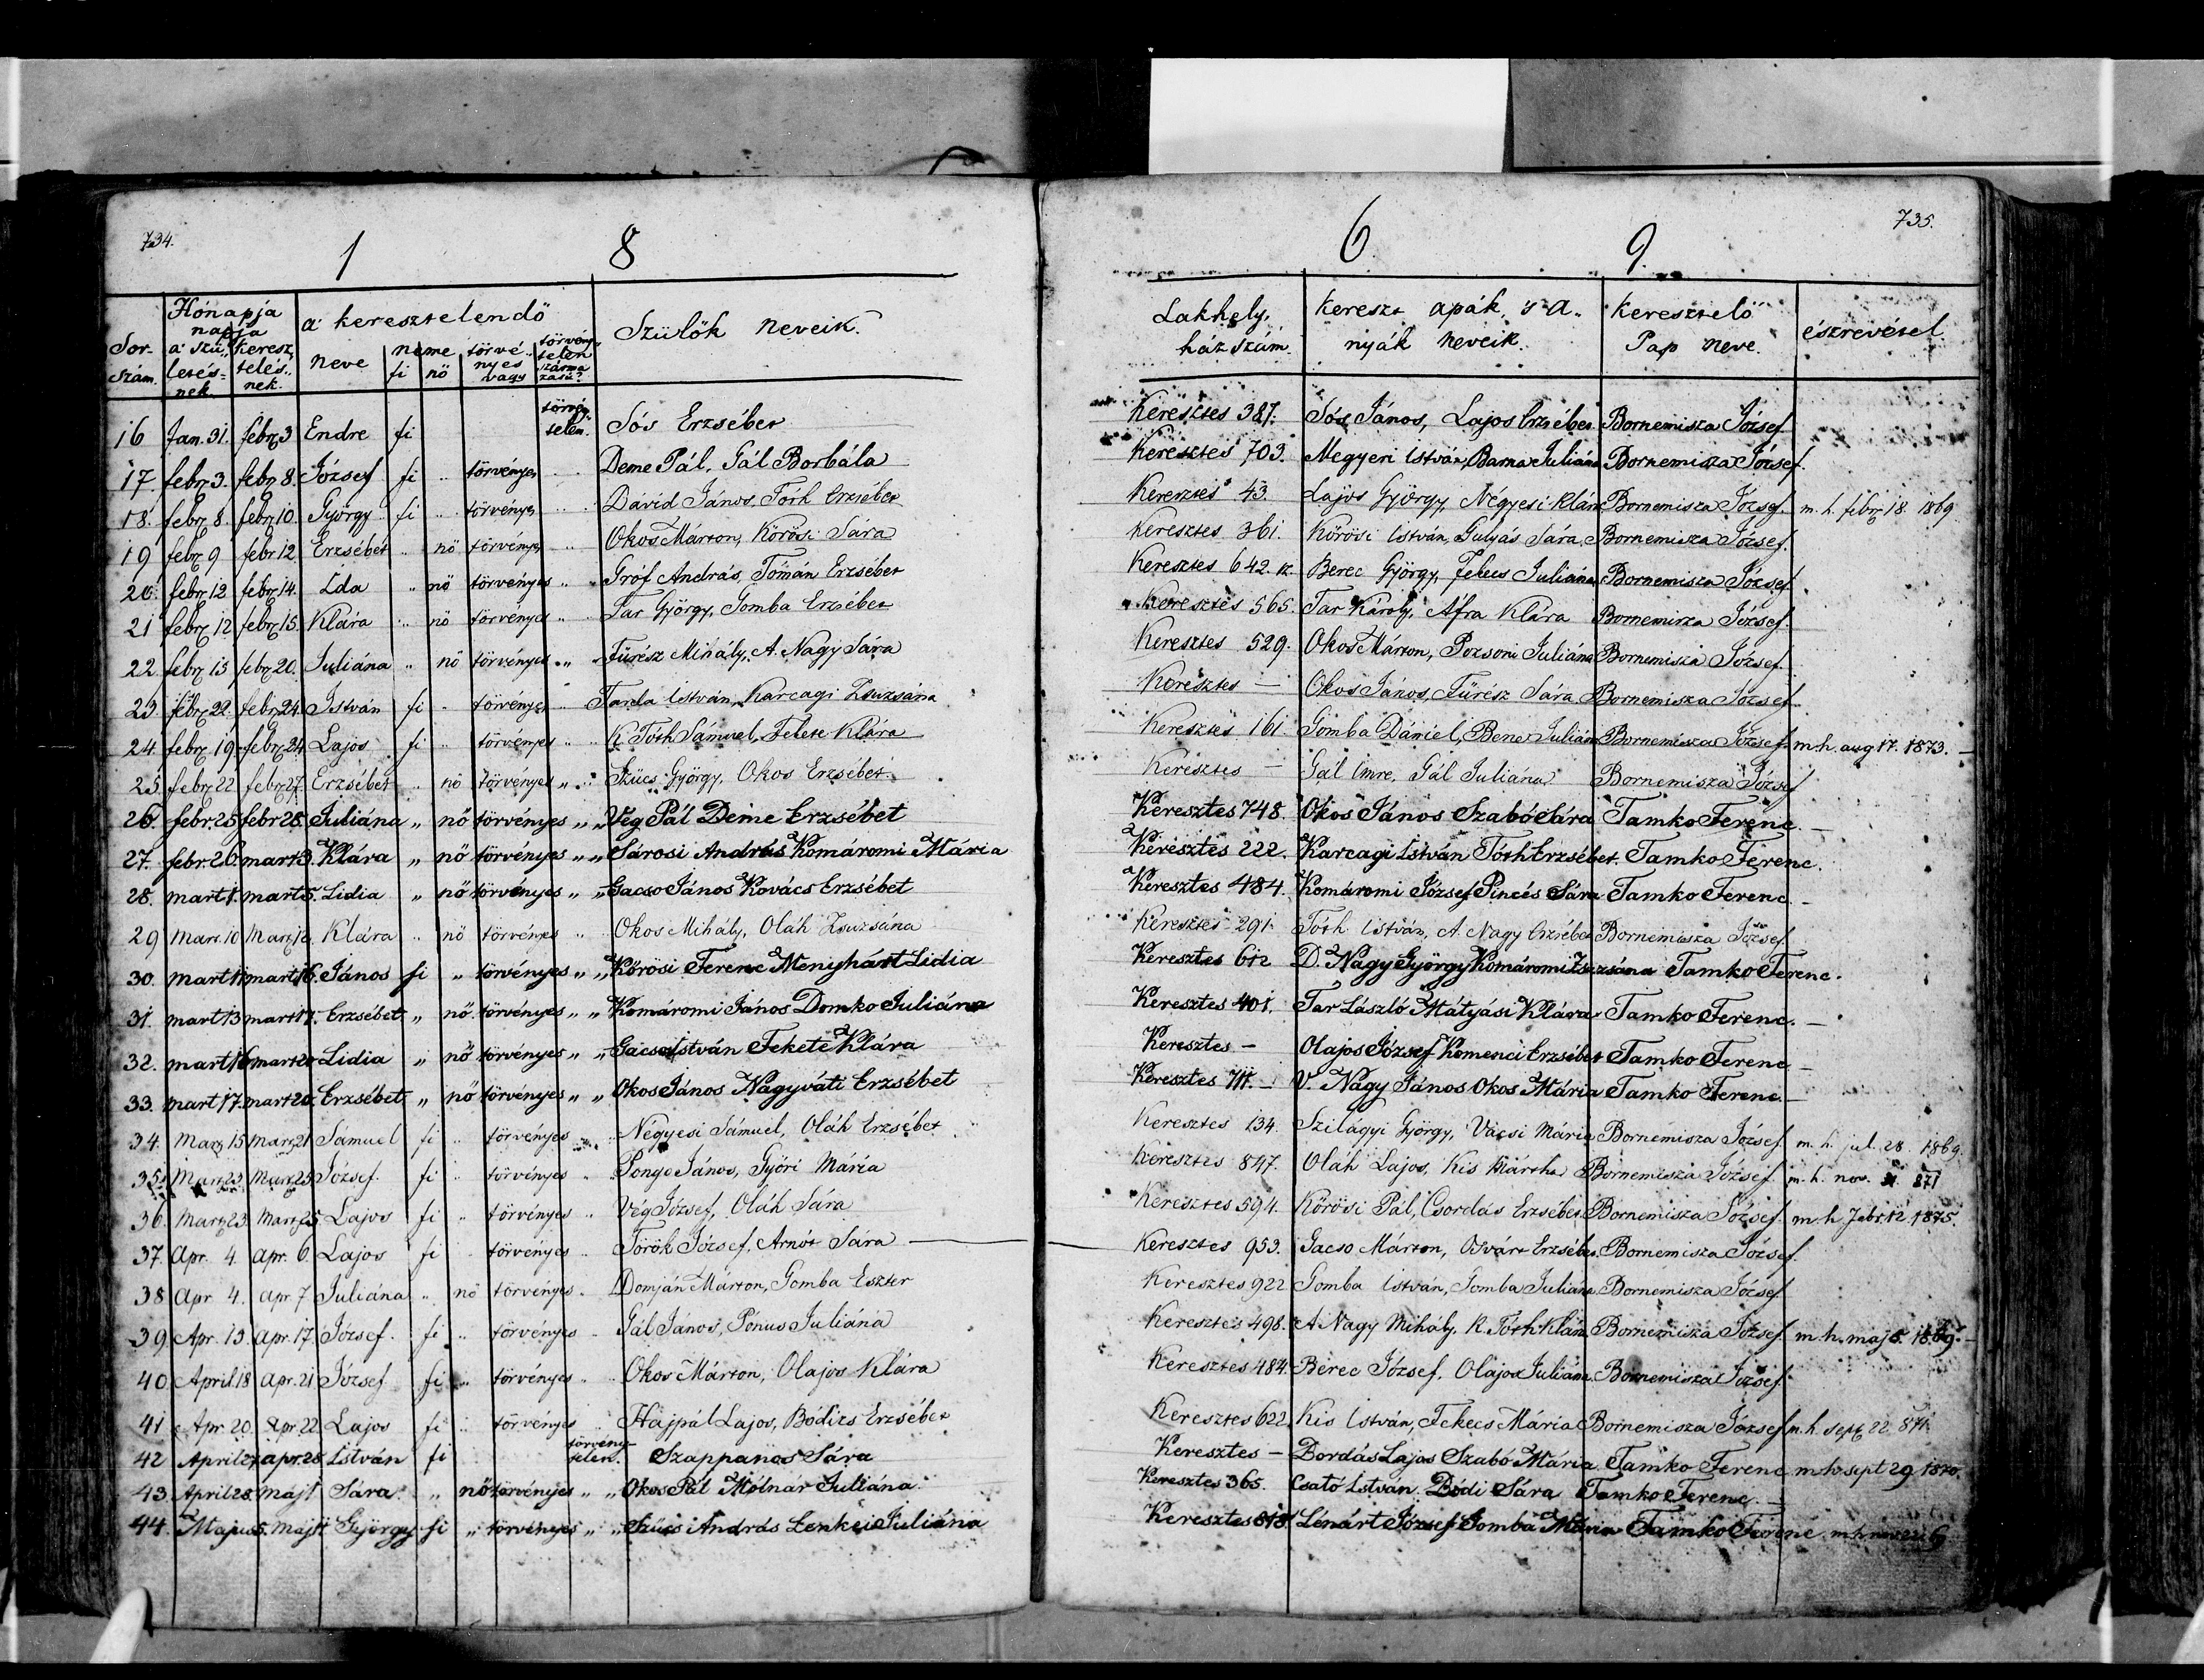 734.
1 8
Sor-szám. Hónapja napja a' születésnek. keresztelésnek. a' keresztelendő neve neme fi nö törvényes vagy törvénytelen származásu? Szülők neveik.
16 Jan. 31. febr 3 Endre fi törvénytelen. Sós Erzsébet
17. febr 3. febr 8. József fi " törvényes " Deme Pál, Gál Borbála
18. febr 8. febr 10. György fi " törvényes " David János, Tóth Erzsébet
19 febr 9 febr 12 Erzsébet " nö törvényes " Okos Márton, Körösi Sára
20. febr 12 febr 14. Ida " nö törvényes " Gróf András, Tómán Erzsébet
21 febr 12 febr 15. Klára " nö törvényes " Tar György, Gomba Erzsébet
22. febr 15 febr 20. Juliána " nö törvényes " Fürész Mihály, A. Nagy Sára
23. febr 22. febr 24. István fi " törvényes " Tarda István, Karcagi Zsuzsána
24 febr 19 febr 24 Lajos fi " törvényes " K. Tóth Sámuel, Fekete Klára
25. febr 22 febr 27. Erzsébet " nö törvényes " Szücs György, Okos Erzsébet
26. febr. 25 febr 28. Juliána " nő törvényes " " Vég Pál Deme Erzsébet
27. febr. 26. mart 3. Klára " nő törvényes " " Sárosi András Komáromi Mária
28. mart 1. mart 5. Lidia " nő törvényes " " Gacso János Kovács Erzsébet
29 Marz. 10 Marz 12. Klára " nö törvényes " Okos Mihály, Oláh Zsuzsána
30. mart 11 mart 16. János fi " törvényes " " Kőrösi Ferenc Menyhárt Lidia
31. mart 13 mart 17. Erzsébet " nő törvényes " " Komáromi János Domko Juliána
32. mart 16 mart 20 Lidia " nő törvényes " " Gacso István Fekete Klára
33. mart 17. mart 20. Erzsébet " nő törvényes " " Okos János Nagyváti Erzsébet
34. Marz 15 Marz 21 Sámuel fi " törvényes Négyesi Sámuel, Oláh Erzsébet
35. Marz 23 Marz 25 József. fi " törvényes " Ponge János, Győri Mária
36. Marz 23. Marz 25 Lajos fi " törvényes " Vég József, Oláh Sára
37. Apr. 4. Apr. 6. Lajos fi törvényes " Török József, Arnót Sára
38 Apr 4. apr. 7 Juliána " nö törvényes " Domján Márton, Gomba Eszter
39. Apr. 13. apr. 17. József. fi " törvényes " Gál János, Pónus Juliána
40. April. 18 apr. 21 József fi " törvényes " Okos Márton, Olajos Klára
41 Apr. 20. Apr. 22 Lajos fi " törvényes Hajpál Lajos, Bódizs Erzsébet
42 April 27 apr. 28 István fi törvénytelen. Szappanos Sára
43. April 28. máj 1 Sára. " nő törvényes " " Okos Pál Mólnar Juliána
44 Majus 5. máj 7 György fi " törvényes " " Szücs András Lenkei Juliána
735.
6 9.
Lakhely, házszám. kereszt apák, 's a-nyák neveik. Keresztelő Pap neve. észrevétel.
Keresztes 387. Sós János, Lajos Erzsébet Bornemisza József
Keresztes 703. Megyeri István, Barna Juliána Bornemisza József.
Keresztes 43. Lajos György, Négyesi Klára Bornemisza József. m. h. febr 18 1869
Keresztes 361. Körösi István, Gulyás Sára. Bornemisza József.
Keresztes 642. Berec György, Fekecs Juliána Bornemisza József.
Keresztes 565. Tar Károly, Áfra Klára Bornemisza József.
Keresztes 529. Okos Márton, Pozsoni Juliána Bornemisza József.
Keresztes — Okos János, Fürész Sára Bornemisza József
Keresztes 161. Gomba Dániel, Bene Juliána Bornemisza József. m.h. aug 17. 1873.
Keresztes — Gál Imre, Gál Juliána Bornemisza József
Keresztes 748. Okos János Szabó Sára Tamko Ferenc. —
Keresztes 222. Karcagi István Tóth Erzsébet. Tamko Ferenc.
Keresztes 484. Komáromi József Pincés Sára Tamko Ferenc. —
Keresztes 291. Tóth István, A. Nagy Erzsébet Bornemisza József.
Keresztes 612 D. Nagy György Komáromi Zsuzsána Tamko Ferenc.
Keresztes 401. Tar László Mátyási Klára Tamko Ferenc. —
Keresztes — Olajos József Komenci Erzsébet Tamko Ferenc —
Keresztes 711. — V. Nagy János Okos Mária Tamko Ferenc. —
Keresztes 134. Szilágyi György, Vacsi Mária Bornemisza József m. h. jul. 28. 1869.
Keresztes 847. Oláh Lajos, Kis Mártha Bornemisza József. m. h. nov. 871
Keresztes 594. Kőrösi Pál, Csordás Erzsébet. Bornemisza József. m. h. febr. 12 1875.
Keresztes 953. Gacso Márton, Osvárt Erzsébet. Bornemisza József.
Keresztes 922 Gomba István, Gomba Juliána. Bornemisza József
Keresztes 498. A Nagy Mihály, K. Tóth Klára. Bornemisza József. m. h. maj 5. 1869.
Keresztes 484. Berec József, Olajos Juliána. Bornemisza József.
Keresztes 622. Kis István, Fekecs Mária Bornemisza József m. h. sept 22 871.
Keresztes — Bordás Lajos Szabó Mária Tamko Ferenc m.h. sept 29 1870.
Keresztes 365. Csató István. Bódi Sára Tamko Ferenc. —
Keresztes 818 Lénárt József Gomba Mária Tamko Ferenc m.h.